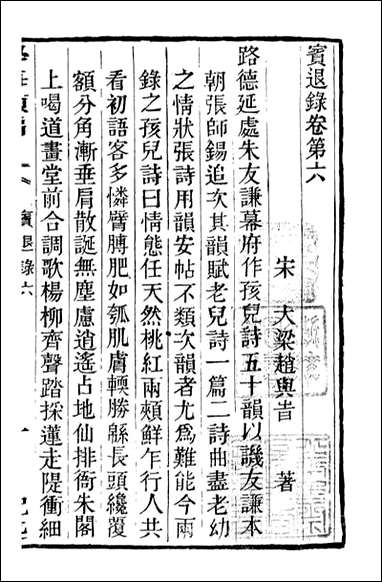 賓退錄卷第六
宋 大梁趙與旹 著
路德延處朱友謙幕府作孩兒詩五十韻以譏友謙本
朝張師錫追次其韻賦老兒詩一篇二詩曲盡老幼
之情狀張詩用韻安帖不類次韻者尤爲難能今兩
錄之孩兒詩曰情態任天然桃紅兩頰鮮乍行人共
看初語客多憐臂膊肥如瓠肌膚輭勝緜長頭纔覆
額分角漸垂肩散誕無塵慮逍遙占地仙排衙朱閣
上喝道畫堂前合調歌楊柳齊聲踏採蓮走隄衝細
賓退錄六
一